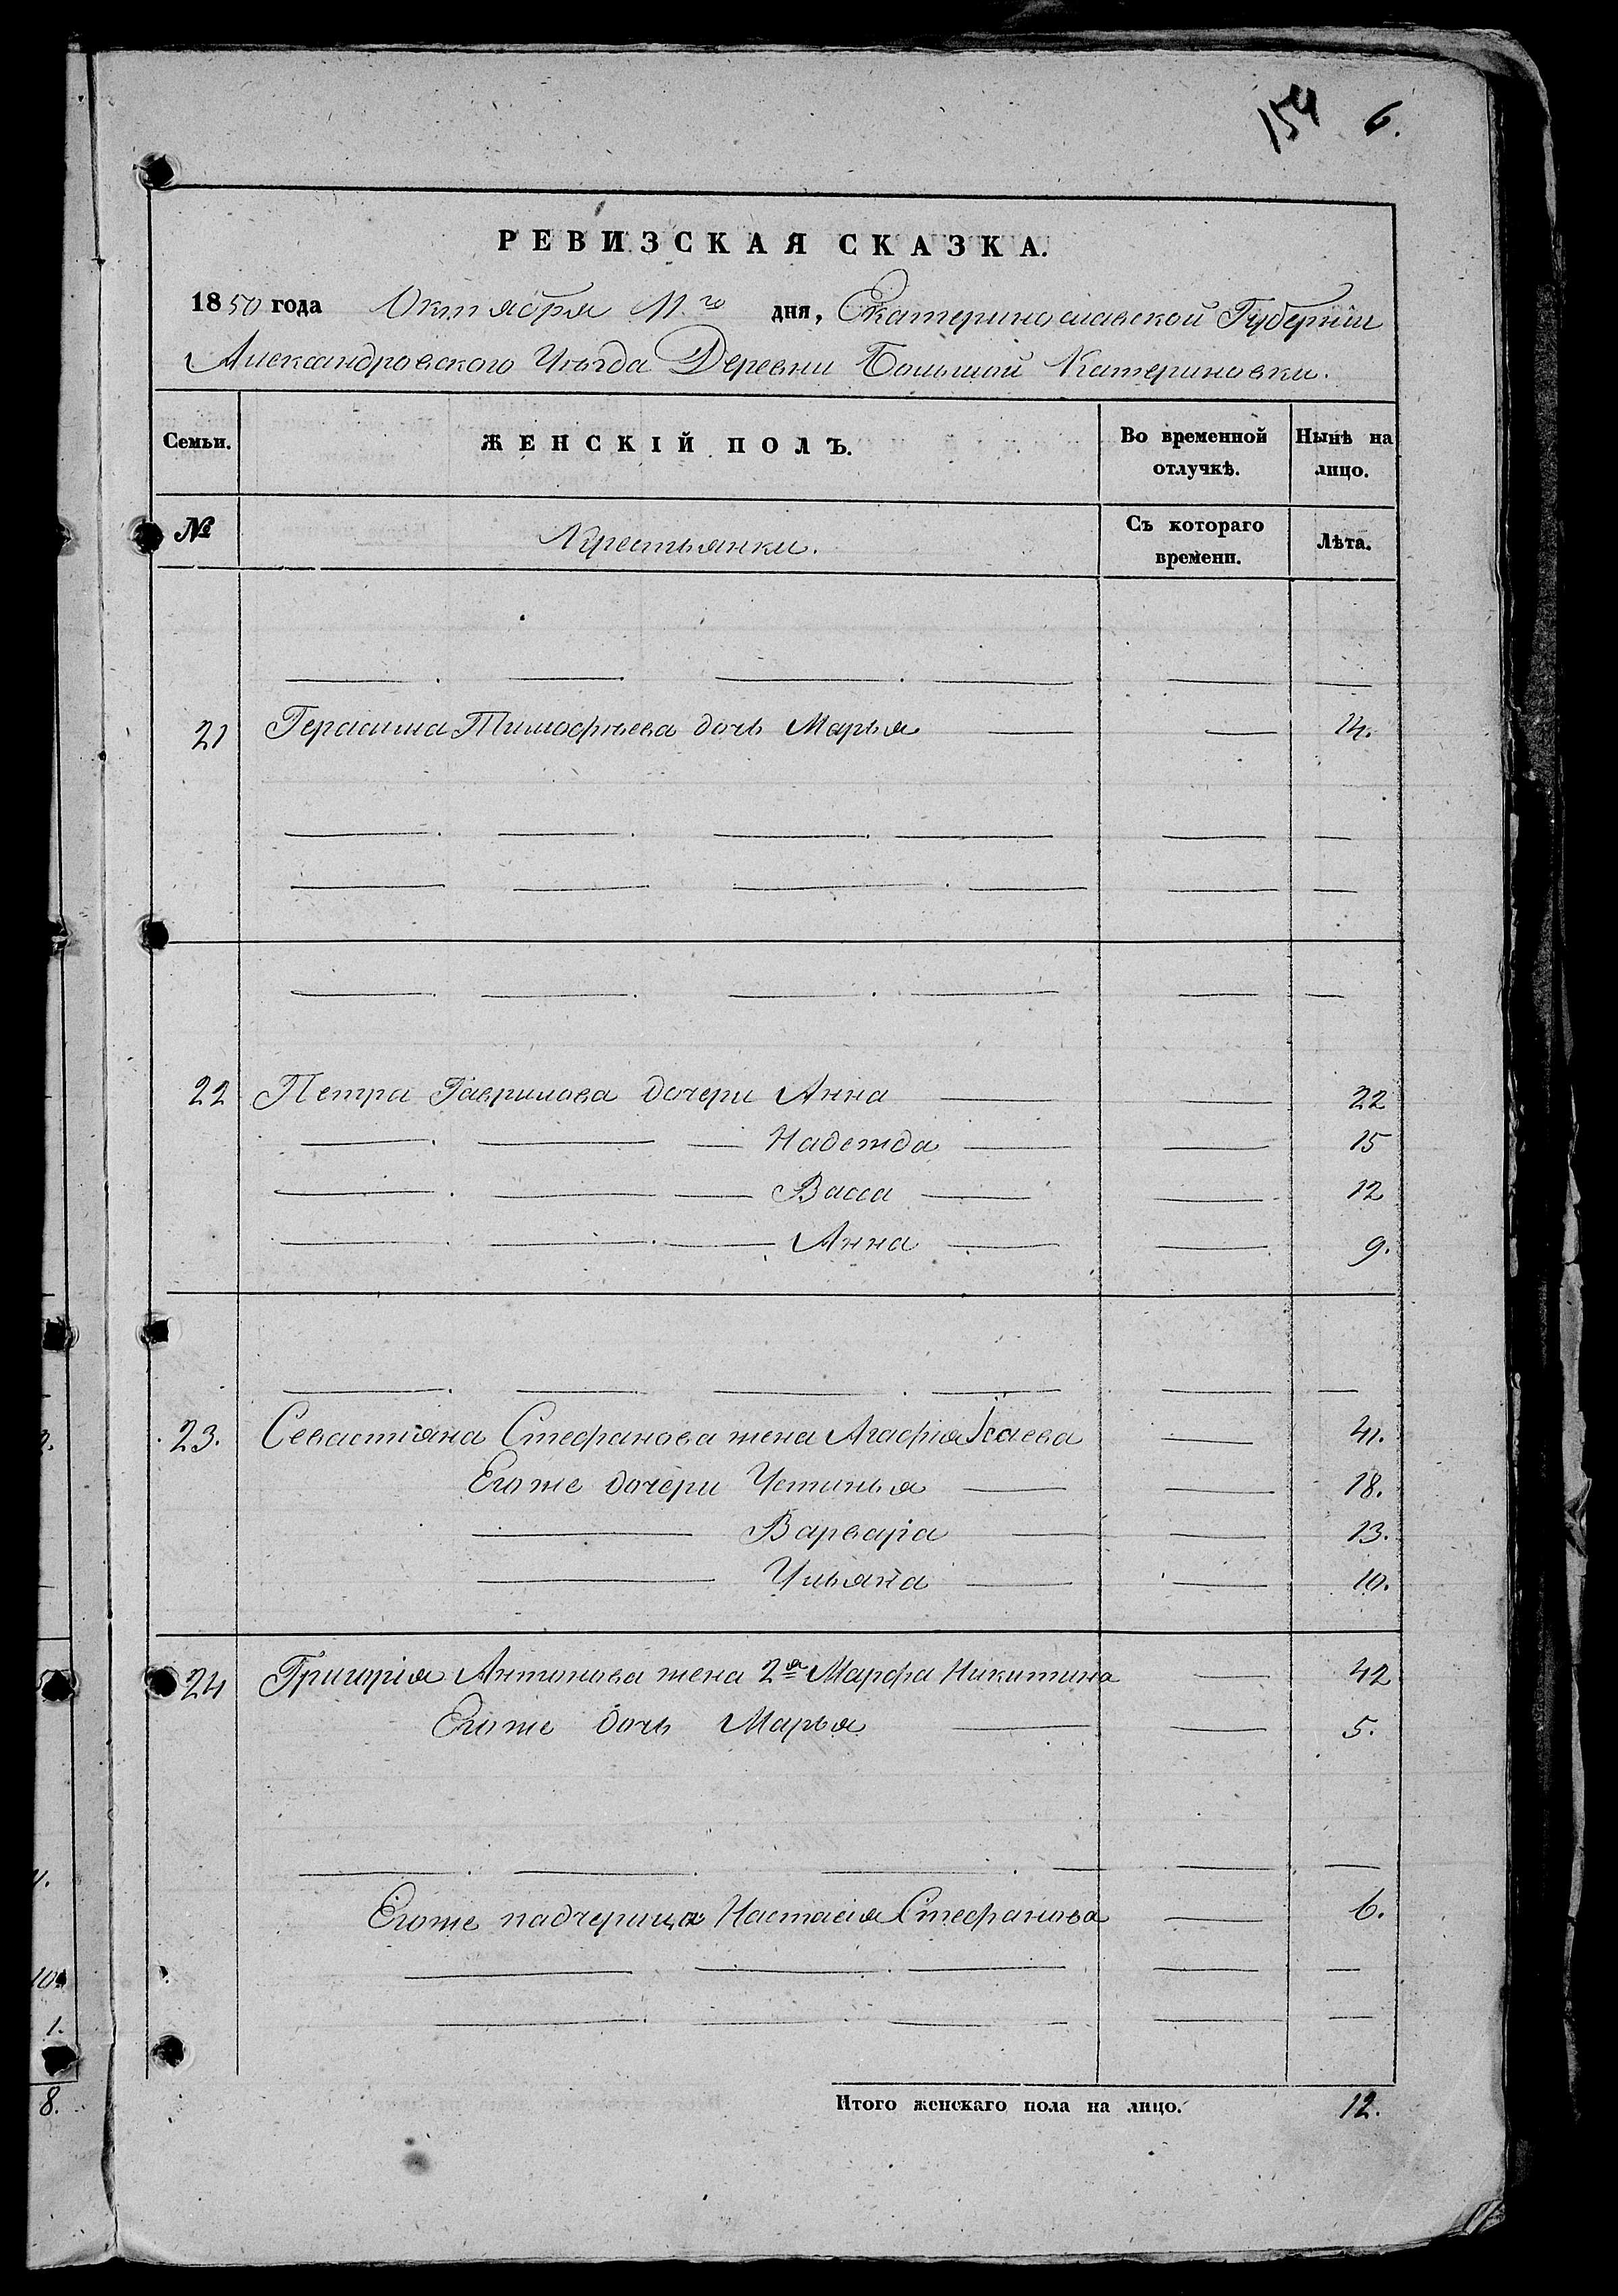 154 6.
РЕВИЗСКАЯ СКАЗКА.
1850 года Октября 11.го дня, Екатеринославской Губернїи
Александровского Уѣзда Деревни Большой Катериновки.
Семьи. ЖЕНСКІЙ ПОЛЪ. Во временной отлучкѣ. Нынѣ на лицо.
№ Крестьянки. Съ котораго времени. Лѣта.
21 Герасима Тимофѣева дочь Марья — — 14.
22 Петра Гаврилова дочери Анна — — 22
— — — Надежда — — 15
— — — Васса — — 12
— — — Анна — — 9.
23. Севастїяна Стефанова жена Агафїя Їсаева — 41.
Егоже дочери Устинья — — 18.
— Варвара — — 13.
— Ульяна — — 10.
24 Григорїя Антонова жена 2я Марфа Никитина — 42
Егоже дочь Марья — — 5.
Егоже падчерица Настасїя Стефанова — 6.
Итого женскаго пола на лицо. 12.
2.
10.
1.
8.